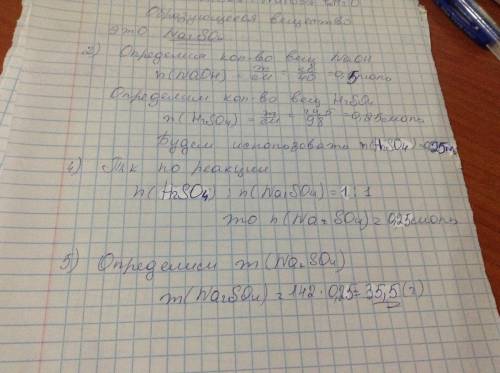 Образующееся вещество
это Na2SO4
2) Определим кол-во вещ NaOH
n(NaOH) = m/M = /40 = 0,5моль
Определим кол-во вещ H2SO4
n(H2SO4) = m/M = /98 = моль
Будем использовать n(H2SO4) =
4) Т.к по реакции
n(H2SO4) : n(Na2SO4) = 1 : 1
то n(Na2SO4) = 0,25моль
5) Определим m(Na2SO4)
m(Na2SO4) = 142 · 0,25 = 35,5(г)